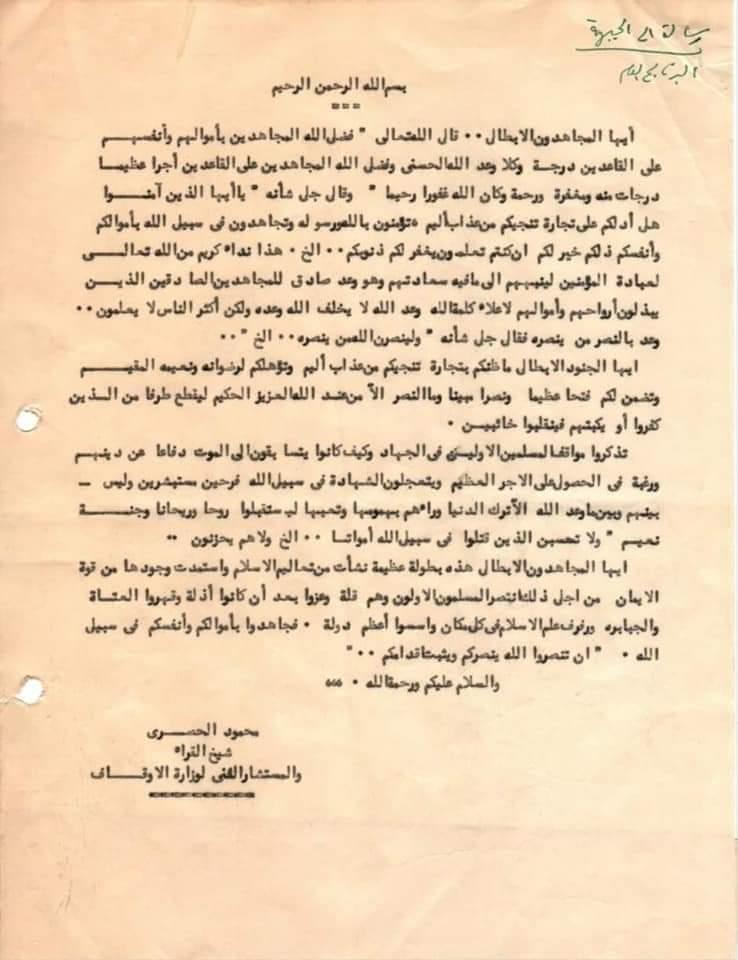 رسالة الى الجبهة
البرنامج العام
بسم الله الرحمن الرحيم
===
أيها المجاهدون الابطال ٠٠ قال الله تعالى " فضل الله المجاهدين بأموالهم وأنفسهم
على القاعدين درجة وكلا وعد الله الحسنى وفضل الله المجاهدين على القاعدين أجرا عظيما
درجات منه ومغفرة ورحمة وكان الله غفورا رحيما " وقال جل شأنه " ياأيها الذين آمنوا
هل أدلكم على تجارة تنجيكم من عذاب أليم ٠ تؤمنون بالله ورسوله وتجاهدون فى سبيل الله بأموالكم
وأنفسكم ذلكم خير لكم ان كنتم تعلمون يغفر لكم ذنوبكم ٠٠ الخ ٠ هذا نداء كريم من الله تعالى
لعباده المؤمنين لينبههم الى مافيه سعادتهم وهو وعد صادق للمجاهدين الصادقين الذين
يبذلون أرواحهم وأموالهم لاعلاء كلمة الله وعد الله لا يخلف الله وعده ولكن أكثر الناس لا يعلمون ٠٠
وعد بالنصر من ينصره فقال جل شأنه " ولينصرن الله من ينصره ٠٠ الخ " ٠٠
ايها الجنود الابطال ماظنكم بتجارة تنجيكم من عذاب أليم وتؤهلكم لرضوانه ونعيمه المقيم
وتضمن لكم فتحا عظيما ونصرا مبينا وما النصر الآ من عند الله العزيز الحكيم ليقطع طرفا من الذين
كفروا أو يكبتهم فينقلبوا خائبين ٠
تذكروا مواقف المسلمين الاولين فى الجهاد وكيف كانوا يتسابقون الى الموت دفاعا عن دينهم
ورغبة فى الحصول على الاجر العظيم ويتعجلون الشهادة فى سبيل الله فرحين مستبشرين وليس ـ
بينهم وبين ماوعد الله الآ ترك الدنيا وراءهم بهمومها وتعبها ليستقبلوا روحا وريحانا وجنة
نعيم " ولا تحسبن الذين قتلوا فى سبيل الله أمواتا ٠٠ الخ ولاهم يحزنون ٠٠
ايها المجاهدون الابطال هذه بطولة عظيمة نشأت من تعاليم الاسلام واستمدت وجودها من قوة
الايمان من اجل ذلك انتصر المسلمون الاولون وهم قلة وعزوا بعد أن كانوا أذلة وقهروا العتاة
والجبابره ورفرف علم الاسلام فى كل مكان واسسوا أعظم دولة ٠ فجاهدوا بأموالكم وأنفسكم فى سبيل
الله ٠ " ان تنصروا الله ينصركم ويثبت اقدامكم ٠٠ "
والسلام عليكم ورحمة الله ٠
محمود الحصرى
شيخ القراء
والمستشار الفنى لوزارة الاوقاف